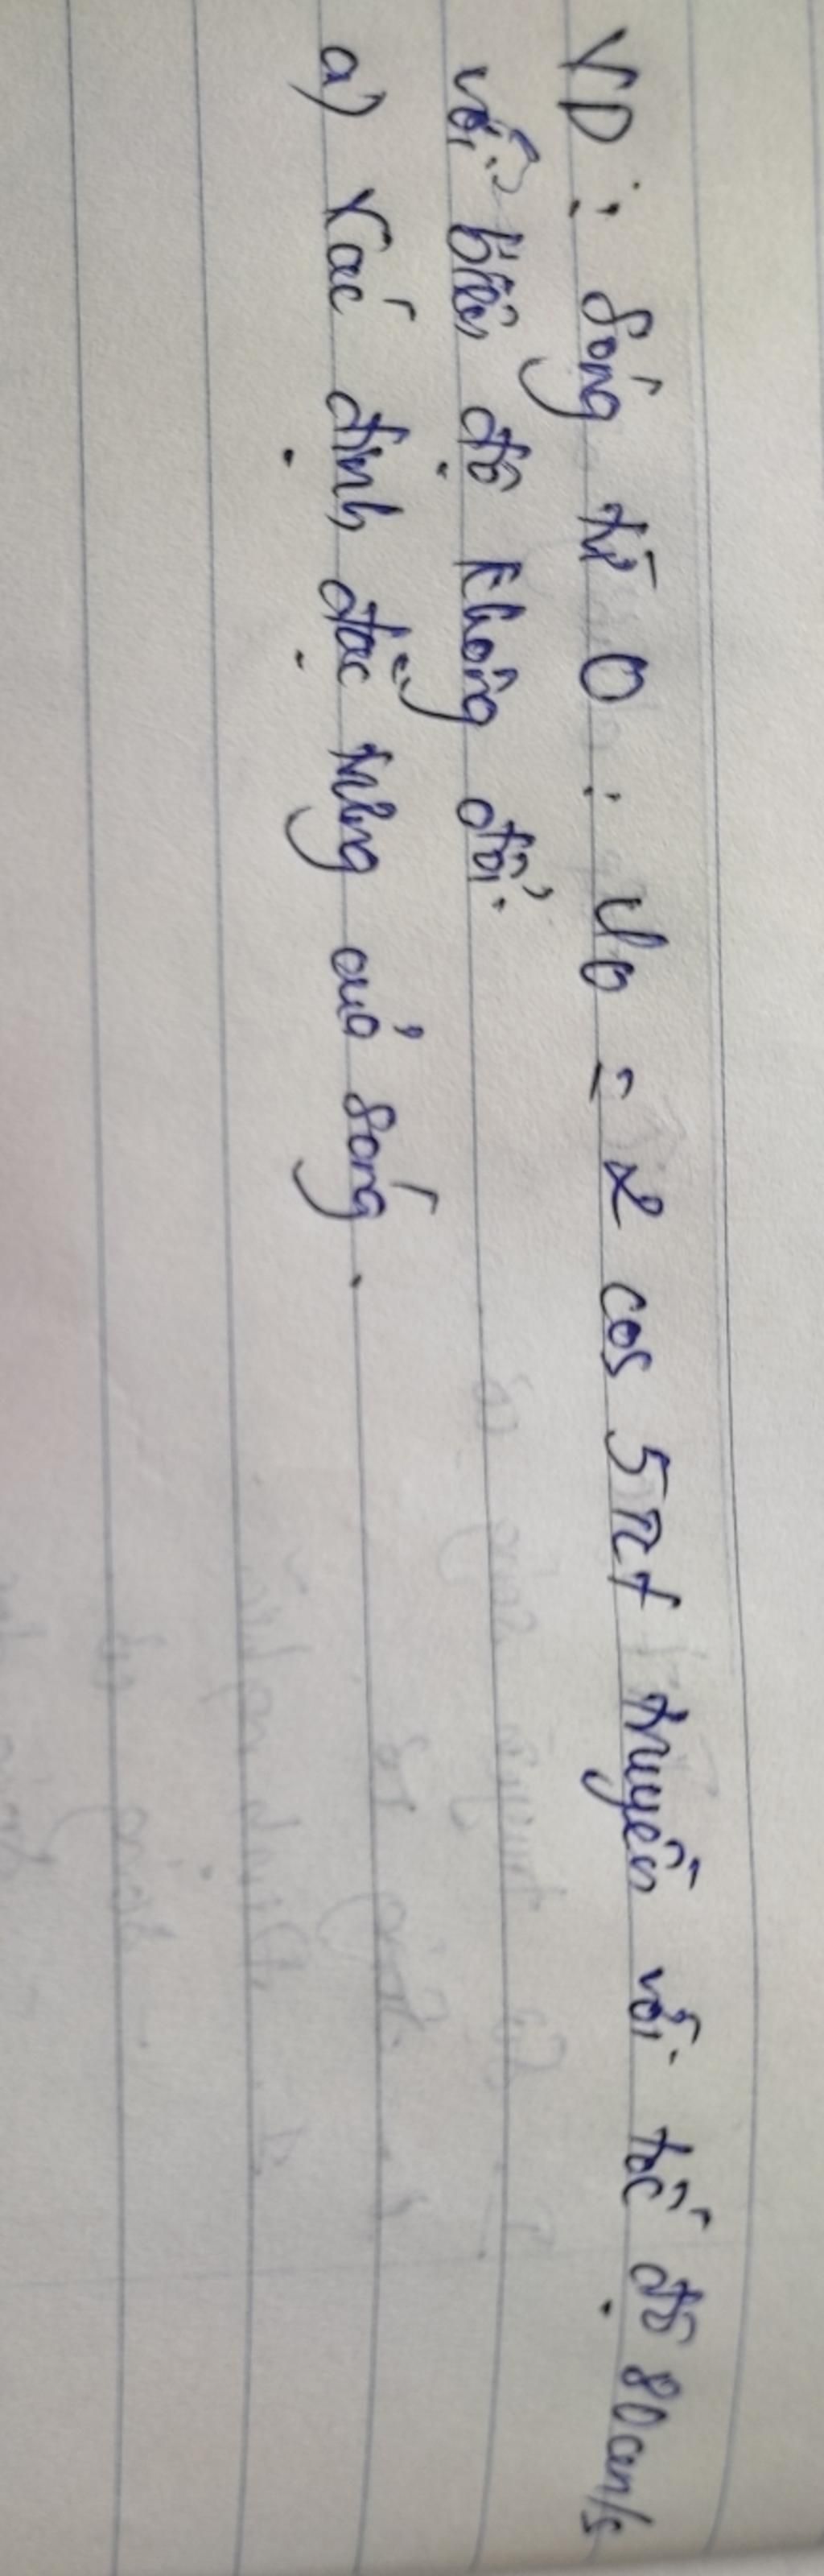 VD : Sóng từ O : u₀ = 2 cos 5πt truyền với tốc độ 80cm/s
với biên độ không đổi.
a) Xác định đặc trưng của sóng.